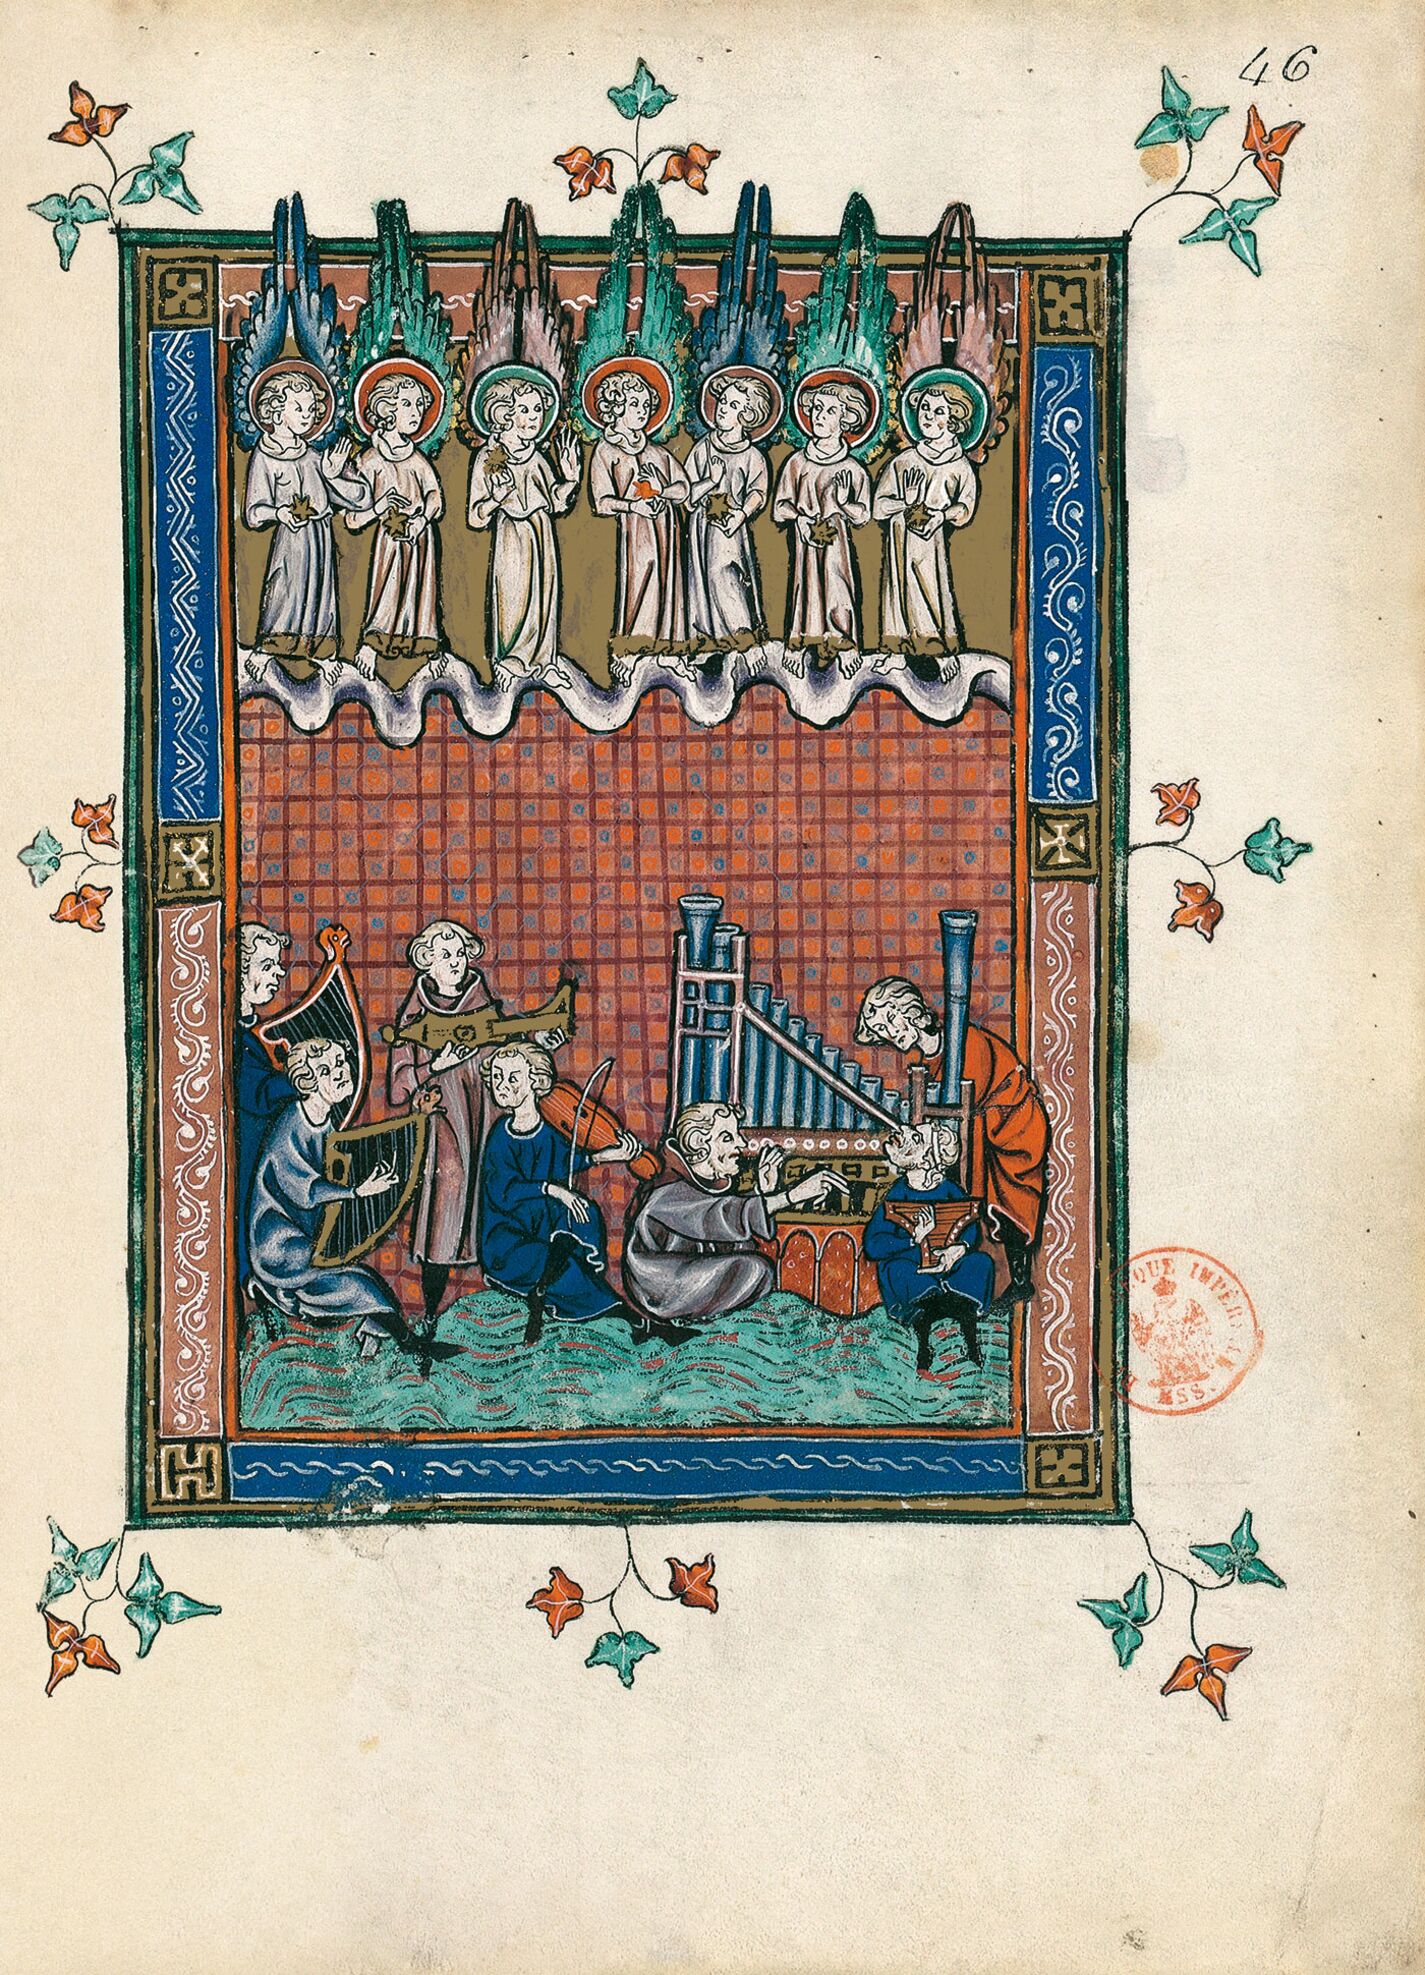 46
QUE IMPÉR
MSS.